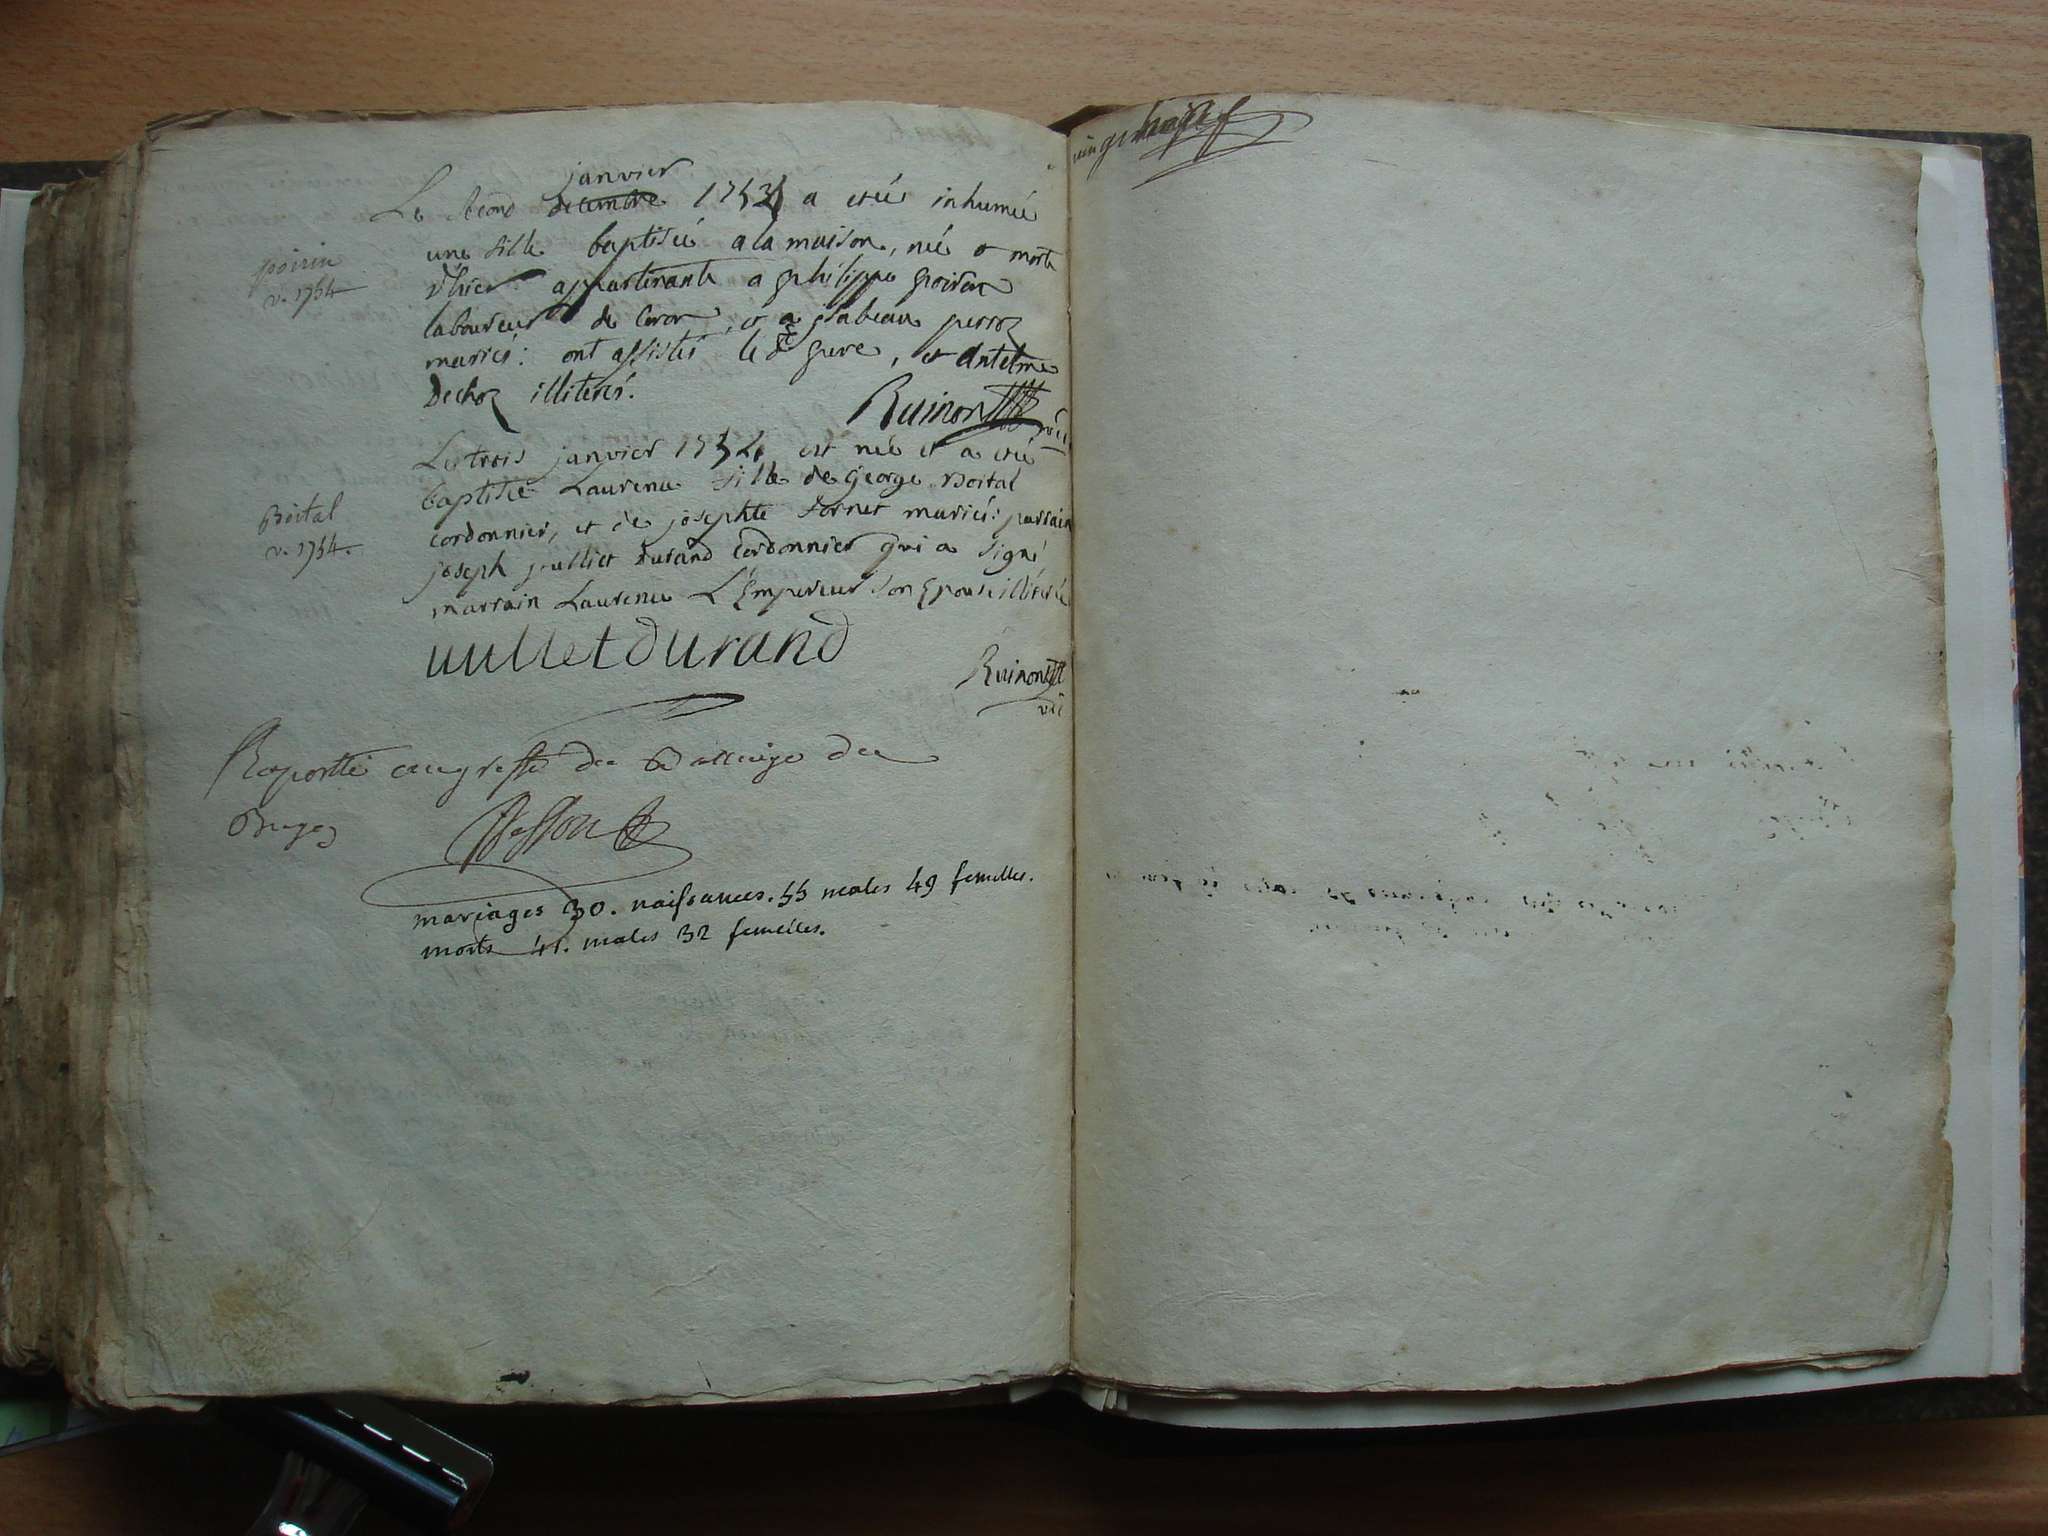 janvier
Le second decembre 1754 a eté inhumée
une fille baptisée a la maison, née & morte
d'hier appartenante a philippe poirin
laboureur de Ceron, et a jsabeau perroz
mariés: ont assisté le d. pere, et Antelme
Dechoz illiterés.
poirin
v. 1754
Ruinon
Le trois janvier 1754 est née et a eté
baptisée Laurence fille de George Boital
cordonnier, et de josephte fornet mariés: parrain
joseph julliet durand cordonnier qui a signé
marrain Laurence L'Empereur son Epouse illiterée
Boital
v. 1754.
uulletdurand
Ruinon
Raporté au greffe du Balliage du
Bugey
Besson
mariages 30. naissances. 55 males 49 femelles.
morts 41. males 32 femelles.